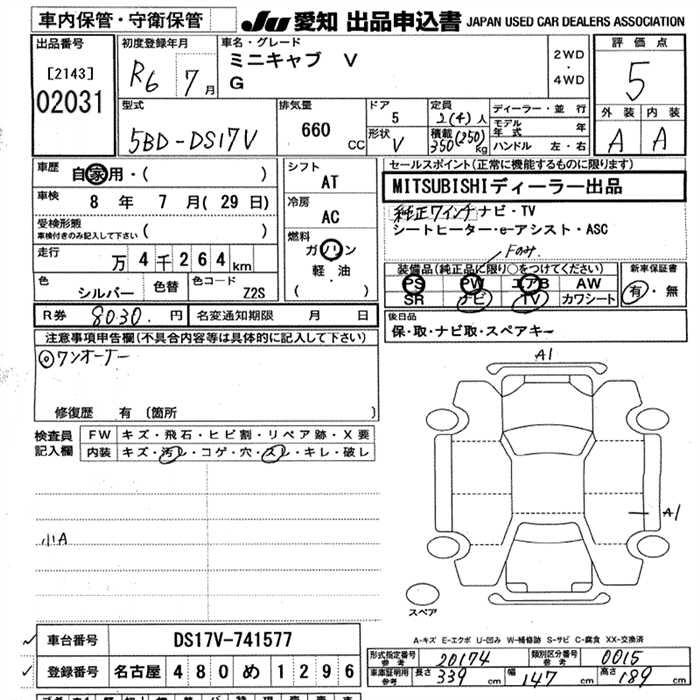 車内保管・守衛保管 JU 愛知 出品申込書 JAPAN USED CAR DEALERS ASSOCIATION
出品番号 [2143] 02031
初度登録年月 R6 7月
車名・グレード ミニキャブ V
G
2WD・4WD
評価点 5
外装 内装
A A
型式 5BD-DS17V
排気量 660 CC
ドア 5
形状 V
定員 2(4)人
積載 350(250)kg
ディーラー・並行
モデル年式 年
ハンドル 左・右
車歴 自家用・( )
車検 8年 7月(29日)
受検形態 車検付きのみ記入して下さい ( )
走行 万4千264km
色 シルバー 色替 色コード Z2S
シフト AT
冷房 AC
燃料 ガソリン
軽・油
( )
セールスポイント(正常に機能するものに限ります)
MITSUBISHIディーラー出品
純正7インチナビ・TV
シートヒーター・e-アシスト・ASC
Fのみ
装備品(純正品に限り○をつけてください)
PS PW エアB AW
SR ナビ TV カワシート
新車保証書
有・無
R券 8030.円 名変通知期限 月 日
後日品
保・取・ナビ取・スペアキー
注意事項申告欄(不具合内容等は具体的に記入して下さい)
◎ワンオーナー
修復歴 有 〔箇所 〕
検査員記入欄
FW キズ・飛石・ヒビ割・リペア跡・X要
内装 キズ・汚レ・コゲ・穴・スレ・キレ・破レ
小A
A1
A1
スペア
A-キズ E-エクボ U-凹み W-補修跡 S-サビ C-腐食 XX-交換済
車台番号 DS17V-741577
登録番号 名古屋 480 め 1296
形式指定番号 参考 20174 類別区分番号 参考 0015
車庫証明用 参考 長さ 339 幅 147 高さ 189 cm